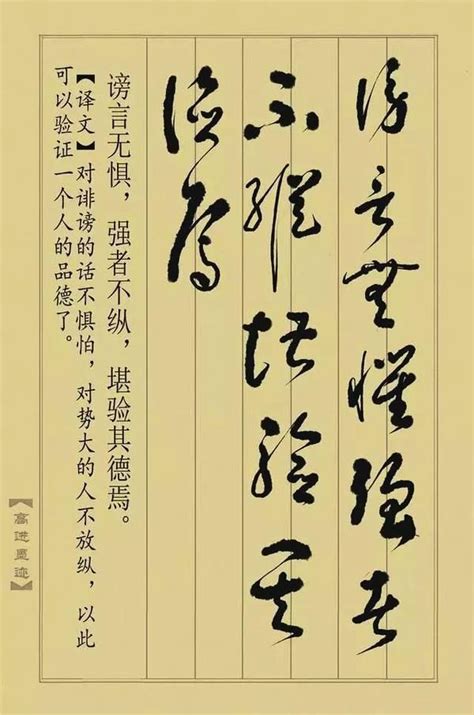 谤言无惧强者
不纵堪验其
德焉
谤言无惧，强者不纵，堪验其德焉。
【译文】对诽谤的话不惧怕，对势大的人不放纵，以此
可以验证一个人的品德了。
【高进墨迹】